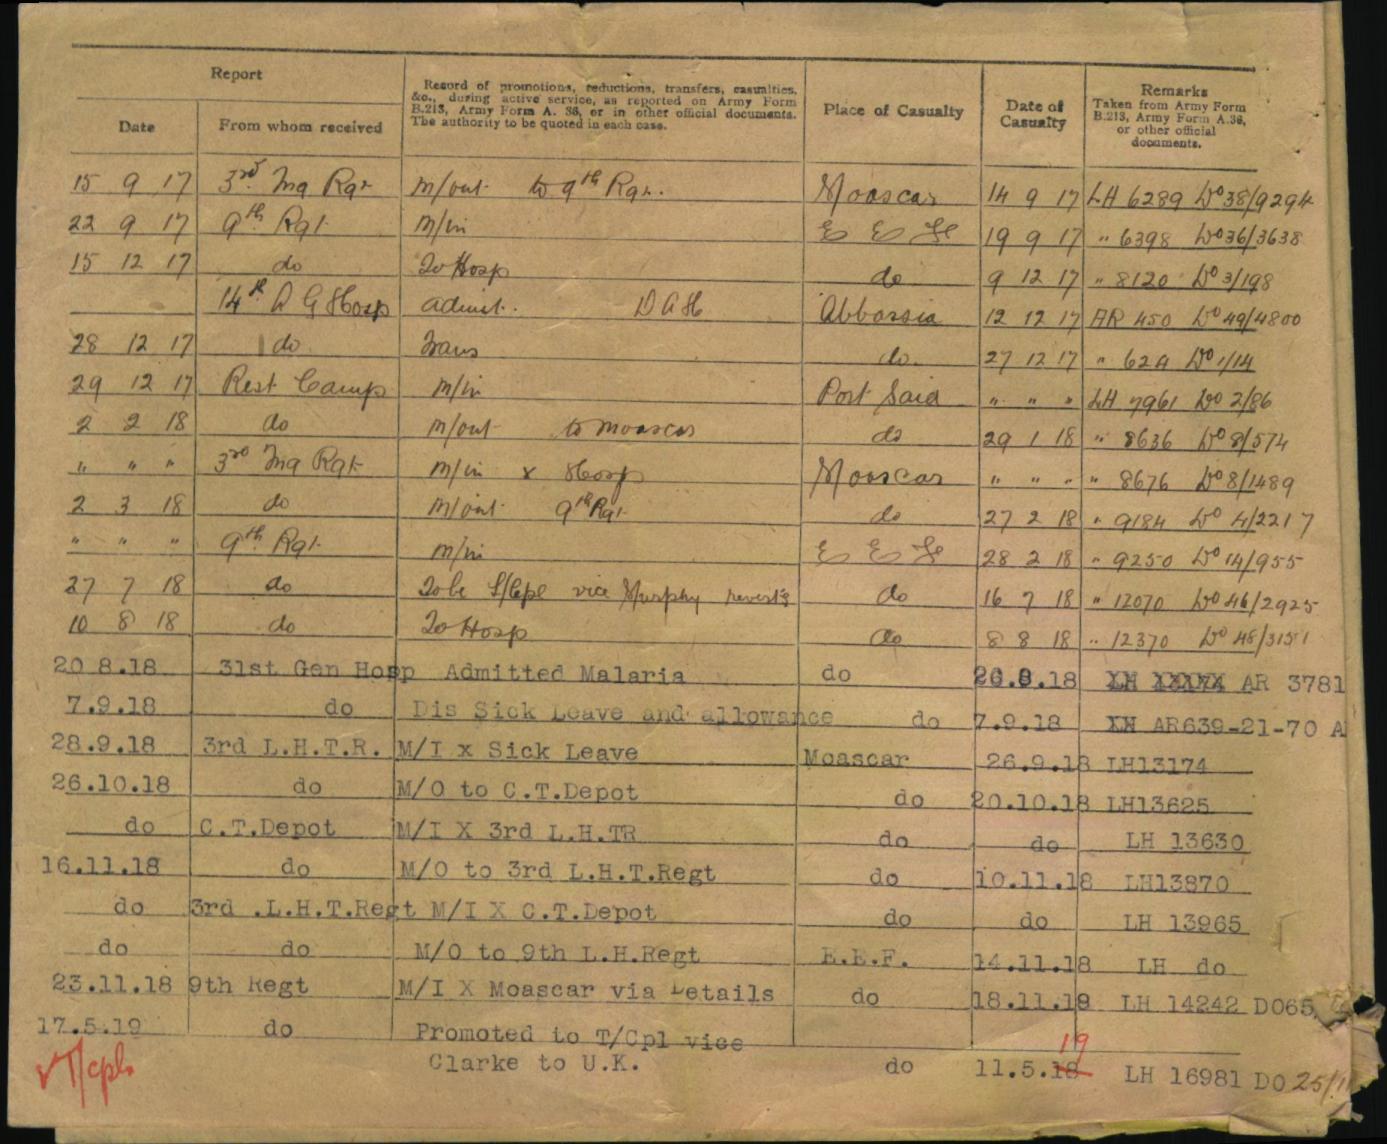 Report
Record of promotions, reductions, transfers, casualties,
&c., during active service, as reported on Army Form
B.213, Army Form A. 36, or in other official documents.
The authority to be quoted in each case.
Place of Casualty
Date of
Casualty
Remarks
Taken from Army Form
B.213, Army Form A.36,
or other official
documents.
Date From whom received
15 9 17 3rd Mg Rgt m/out to 9th Rgt. Moascar 14 9 17 LH 6289 Do 38/9294
22 9 17 9th Rgt m/in E E F 19 9 17 " 6398 Do 36/3638
15 12 17 do To Hosp do 9 12 17 " 8120 Do 3/198
14th A G Hosp admit. D A H Abbassia 12 12 17 AR 450 Do 49/4800
28 12 17 do Trans do. 27 12 17 " 624 Do 1/14
29 12 17 Rest Camp m/in Port Said " " " LH 7961 Do 2/86
2 2 18 do m/out to Moascar do 29 1 18 " 8636 Do 8/574
" " " 3rd Mg Rgt m/in x Hosp Moascar " " " " 8676 Do 8/1489
2 3 18 do m/out 9th Rgt do 27 2 18 " 9184 Do 4/2217
" " " 9th Rgt m/in E E F 28 2 18 " 9250 Do 14/955
27 7 18 do To be L/Cpl vice Murphy revert'g do 16 7 18 " 12070 Do 46/2925
10 8 18 do To Hosp do 8 8 18 " 12370 Do 48/3151
20 8.18 31st Gen Hosp Admitted Malaria do 20.8.18 AR 3781
7.9.18 do Dis Sick Leave and allowance do 7.9.18 AR639-21-70 A
28.9.18 3rd L.H.T.R. M/I x Sick Leave Moascar 26.9.18 LH13174
26.10.18 do M/O to C.T.Depot do 20.10.18 LH13625
do C.T.Depot M/I X 3rd L.H.TR do do LH 13630
16.11.18 do M/O to 3rd L.H.T.Regt do 10.11.18 LH13870
do 3rd .L.H.T.Regt M/I X C.T.Depot do do LH 13965
do do M/O to 9th L.H.Regt E.E.F. 14.11.18 LH do
23.11.18 9th Regt M/I X Moascar via Details do 18.11.18 LH 14242 DO65
17.5.19 do Promoted to T/Cpl vice
19
Clarke to U.K. do 11.5.18 LH 16981 DO 25/11
T/cpl